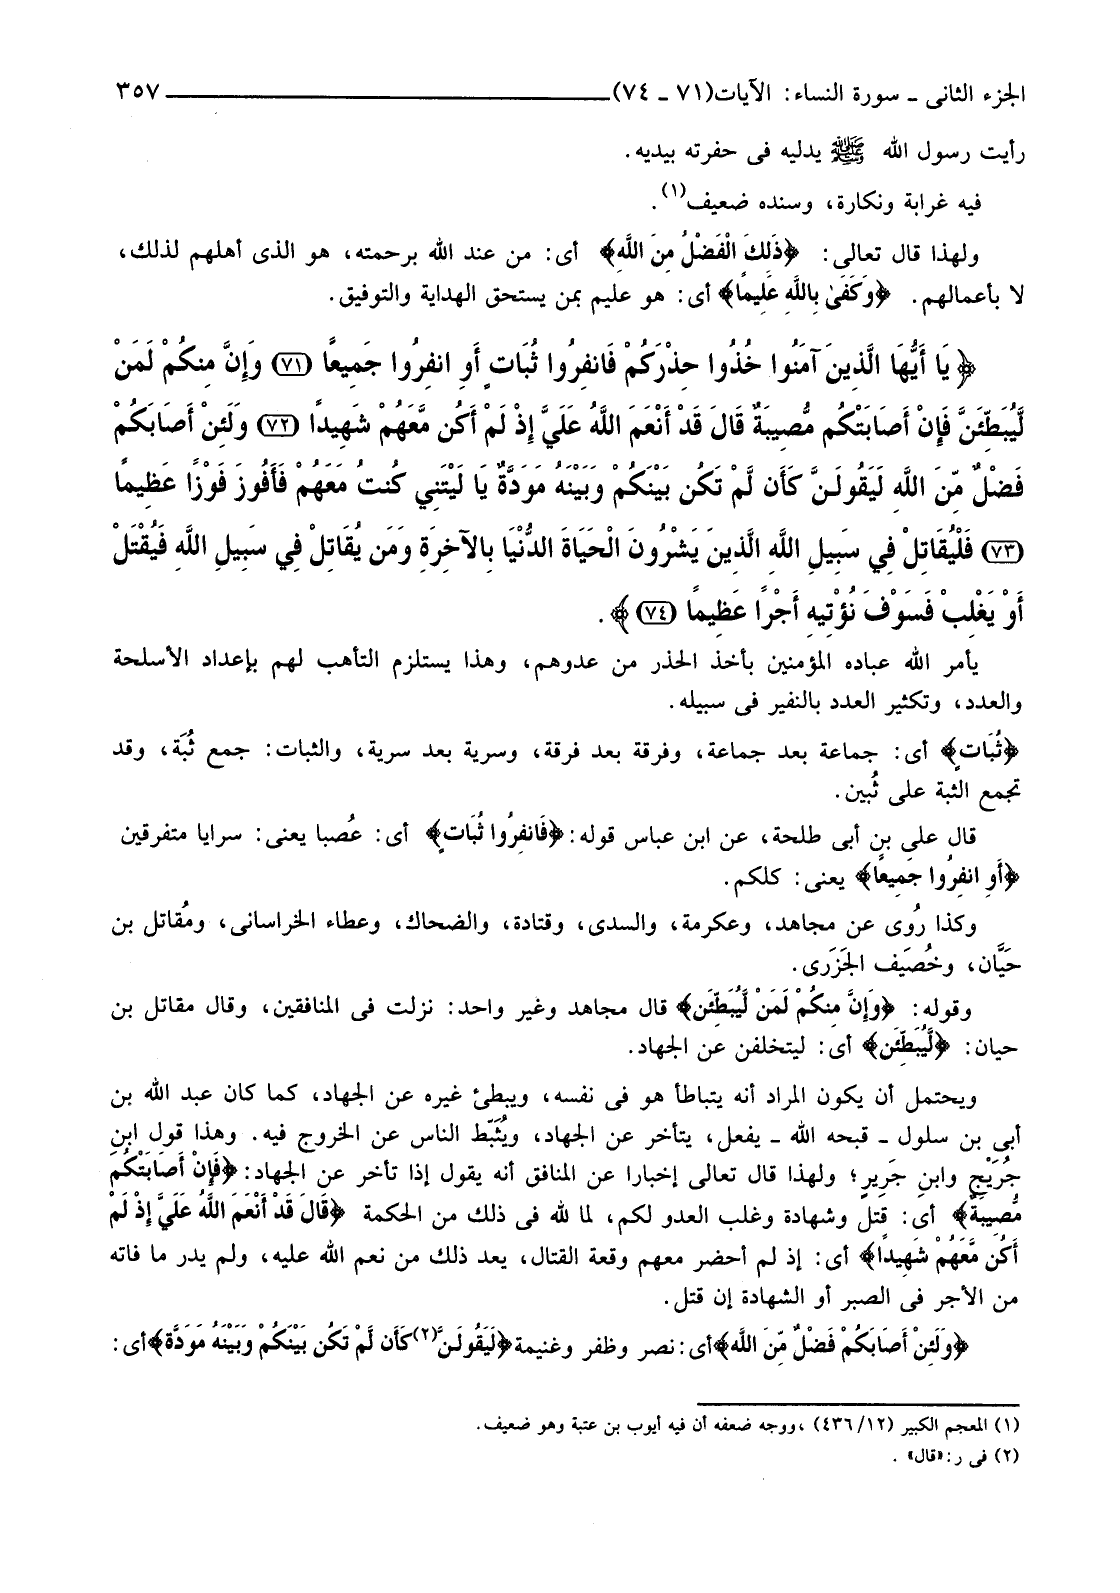 الجزء الثانى ـ سورة النساء: الآيات(٧١ ـ ٧٤) ٣٥٧
رأيت رسول الله ﷺ يدليه فى حفرته بيديه.
فيه غرابة ونكارة، وسنده ضعيف(١).
ولهذا قال تعالى: ﴿ذَلِكَ الْفَضْلُ مِنَ اللَّهِ﴾ أى: من عند الله برحمته، هو الذى أهلهم لذلك،
لا بأعمالهم. ﴿وَكَفَىٰ بِاللَّهِ عَلِيمًا﴾ أى: هو عليم بمن يستحق الهداية والتوفيق.
﴿يَا أَيُّهَا الَّذِينَ آمَنُوا خُذُوا حِذْرَكُمْ فَانفِرُوا ثُبَاتٍ أَوِ انفِرُوا جَمِيعًا (٧١) وَإِنَّ مِنكُمْ لَمَنْ
لَّيُبَطِّئَنَّ فَإِنْ أَصَابَتْكُم مُّصِيبَةٌ قَالَ قَدْ أَنْعَمَ اللَّهُ عَلَيَّ إِذْ لَمْ أَكُن مَّعَهُمْ شَهِيدًا (٧٢) وَلَئِنْ أَصَابَكُمْ
فَضْلٌ مِّنَ اللَّهِ لَيَقُولَنَّ كَأَن لَّمْ تَكُن بَيْنَكُمْ وَبَيْنَهُ مَوَدَّةٌ يَا لَيْتَنِي كُنتُ مَعَهُمْ فَأَفُوزَ فَوْزًا عَظِيمًا
(٧٣) فَلْيُقَاتِلْ فِي سَبِيلِ اللَّهِ الَّذِينَ يَشْرُونَ الْحَيَاةَ الدُّنْيَا بِالآخِرَةِ وَمَن يُقَاتِلْ فِي سَبِيلِ اللَّهِ فَيُقْتَلْ
أَوْ يَغْلِبْ فَسَوْفَ نُؤْتِيهِ أَجْرًا عَظِيمًا (٧٤)﴾.
يأمر الله عباده المؤمنين بأخذ الحذر من عدوهم، وهذا يستلزم التأهب لهم بإعداد الأسلحة
والعدد، وتكثير العدد بالنفير فى سبيله.
﴿ثُبَاتٍ﴾ أى: جماعة بعد جماعة، وفرقة بعد فرقة، وسرية بعد سرية، والثبات: جمع ثُبَة، وقد
تجمع الثبة على ثُبين.
قال على بن أبى طلحة، عن ابن عباس قوله:﴿فَانفِرُوا ثُبَاتٍ﴾ أى: عُصبا يعنى: سرايا متفرقين
﴿أَوِ انفِرُوا جَمِيعًا﴾ يعنى: كلكم.
وكذا رُوى عن مجاهد، وعكرمة، والسدى، وقتادة، والضحاك، وعطاء الخراسانى، ومُقاتل بن
حَيَّان، وخُصَيف الجَزَرى.
وقوله: ﴿وَإِنَّ مِنكُمْ لَمَنْ لَّيُبَطِّئَن﴾ قال مجاهد وغير واحد: نزلت فى المنافقين، وقال مقاتل بن
حيان: ﴿لَّيُبَطِّئَن﴾ أى: ليتخلفن عن الجهاد.
ويحتمل أن يكون المراد أنه يتباطأ هو فى نفسه، ويبطئ غيره عن الجهاد، كما كان عبد الله بن
أبى بن سلول ـ قبحه الله ـ يفعل، يتأخر عن الجهاد، ويُثَبّط الناس عن الخروج فيه. وهذا قول ابن
جُرَيْجٍ وابنِ جَرِيرٍ؛ ولهذا قال تعالى إخبارا عن المنافق أنه يقول إذا تأخر عن الجهاد:﴿فَإِنْ أَصَابَتْكُم
مُّصِيبَةٌ﴾ أى: قتل وشهادة وغلب العدو لكم، لما لله فى ذلك من الحكمة ﴿قَالَ قَدْ أَنْعَمَ اللَّهُ عَلَيَّ إِذْ لَمْ
أَكُن مَّعَهُمْ شَهِيدًا﴾ أى: إذ لم أحضر معهم وقعة القتال، يعد ذلك من نعم الله عليه، ولم يدر ما فاته
من الأجر فى الصبر أو الشهادة إن قتل.
﴿وَلَئِنْ أَصَابَكُمْ فَضْلٌ مِّنَ اللَّه﴾أى: نصر وظفر وغنيمة﴿لَيَقُولَنَّ(٢)كَأَن لَّمْ تَكُن بَيْنَكُمْ وَبَيْنَهُ مَوَدَّة﴾أى:
(١) المعجم الكبير (١٢/ ٤٣٦) ،ووجه ضعفه أن فيه أيوب بن عتبة وهو ضعيف.
(٢) فى ر:«قال» .